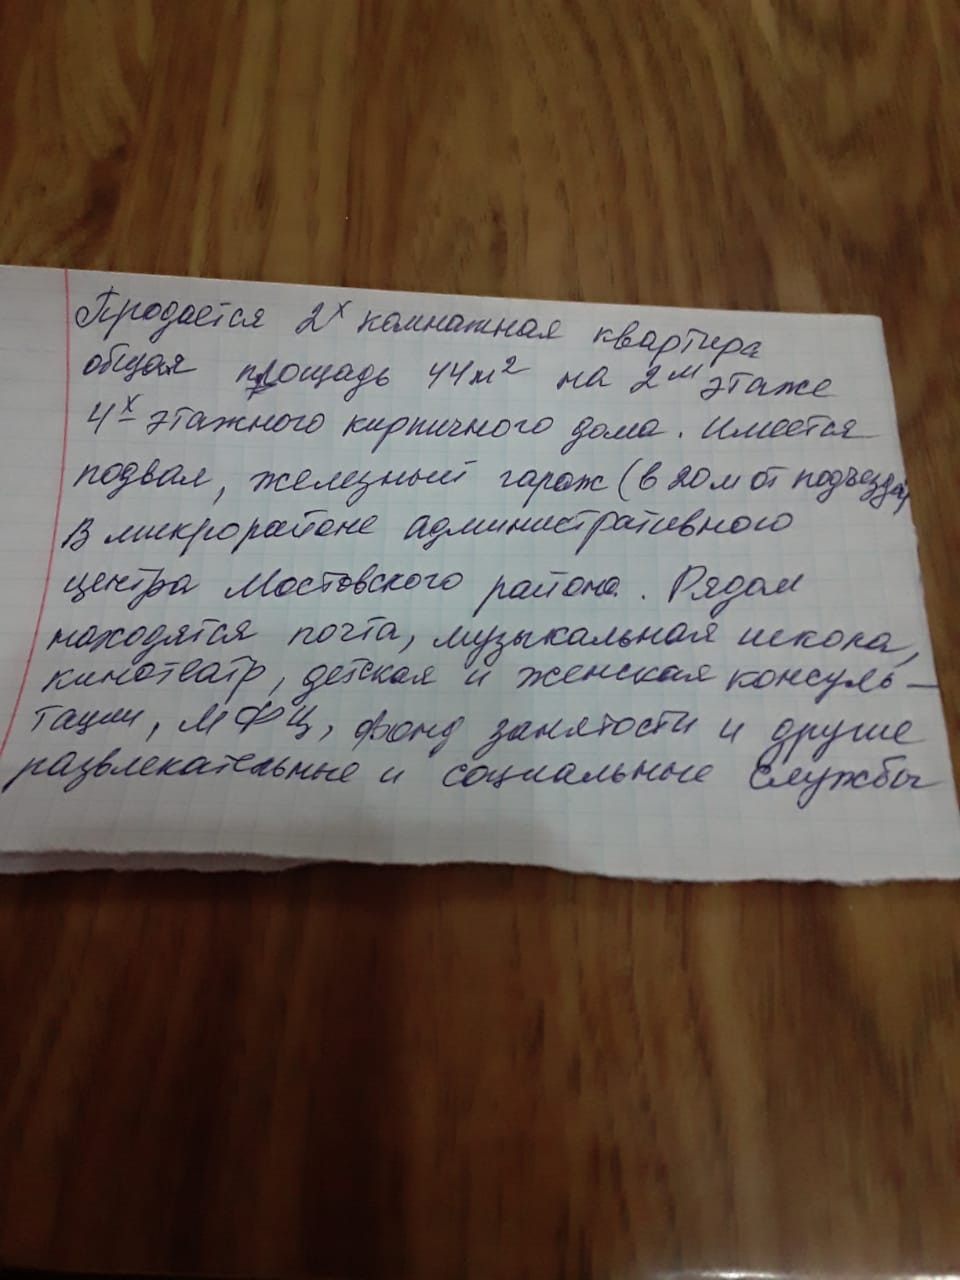 Продается 2х комнатная квартира
общая площадь 44м2 на 2м этаже
4х этажного кирпичного дома. Имеется
подвал, железный гараж (в 20м от подъезда)
В микрорайоне административного
центра Мостовского района. Рядом
находятся почта, музыкальная школа,
кинотеатр, детская и женская консуль-
тации, МФЦ, фонд занятости и другие
развлекательные и социальные службы